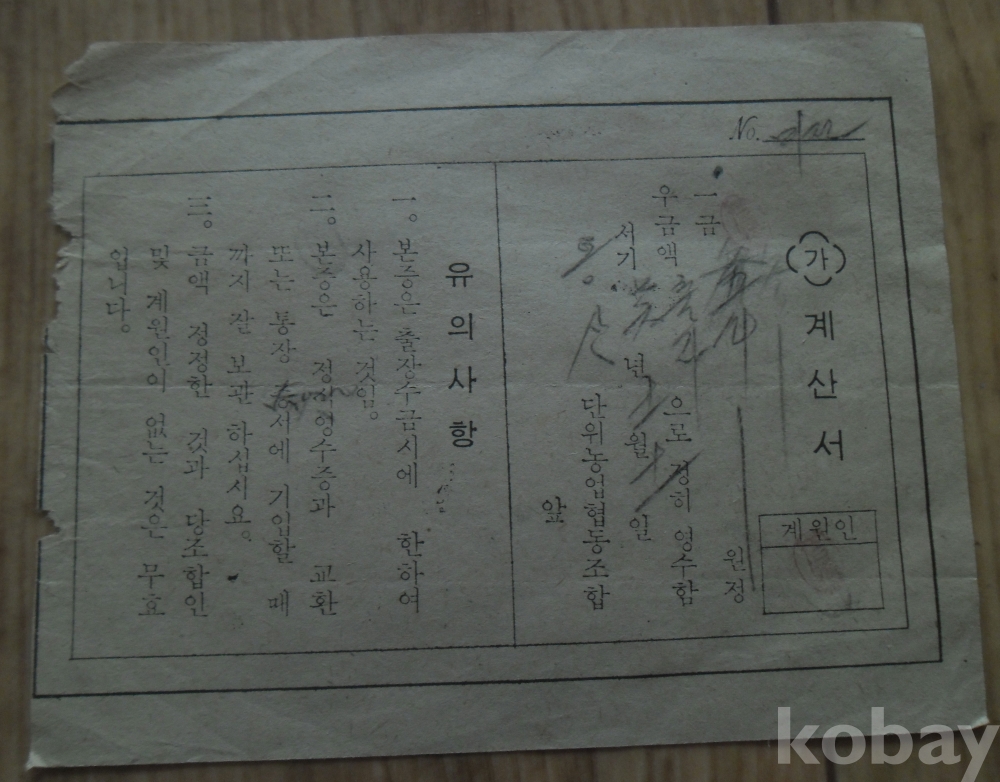 No.
㉮ 계산서
계원인
一금 원정
우금액 으로 정히 영수함
서기 년 월 일
단위농업협동조합
앞
유의사항
一。본증은 출장수금시에 한하여
사용하는 것임。
二。본증은 정식영수증과 교환
또는 통장 증서에 기입할 때
까지 잘 보관 하십시요。
三。금액 정정한 것과 당조합인
및 계원인이 없는 것은 무효
입니다。
kobay